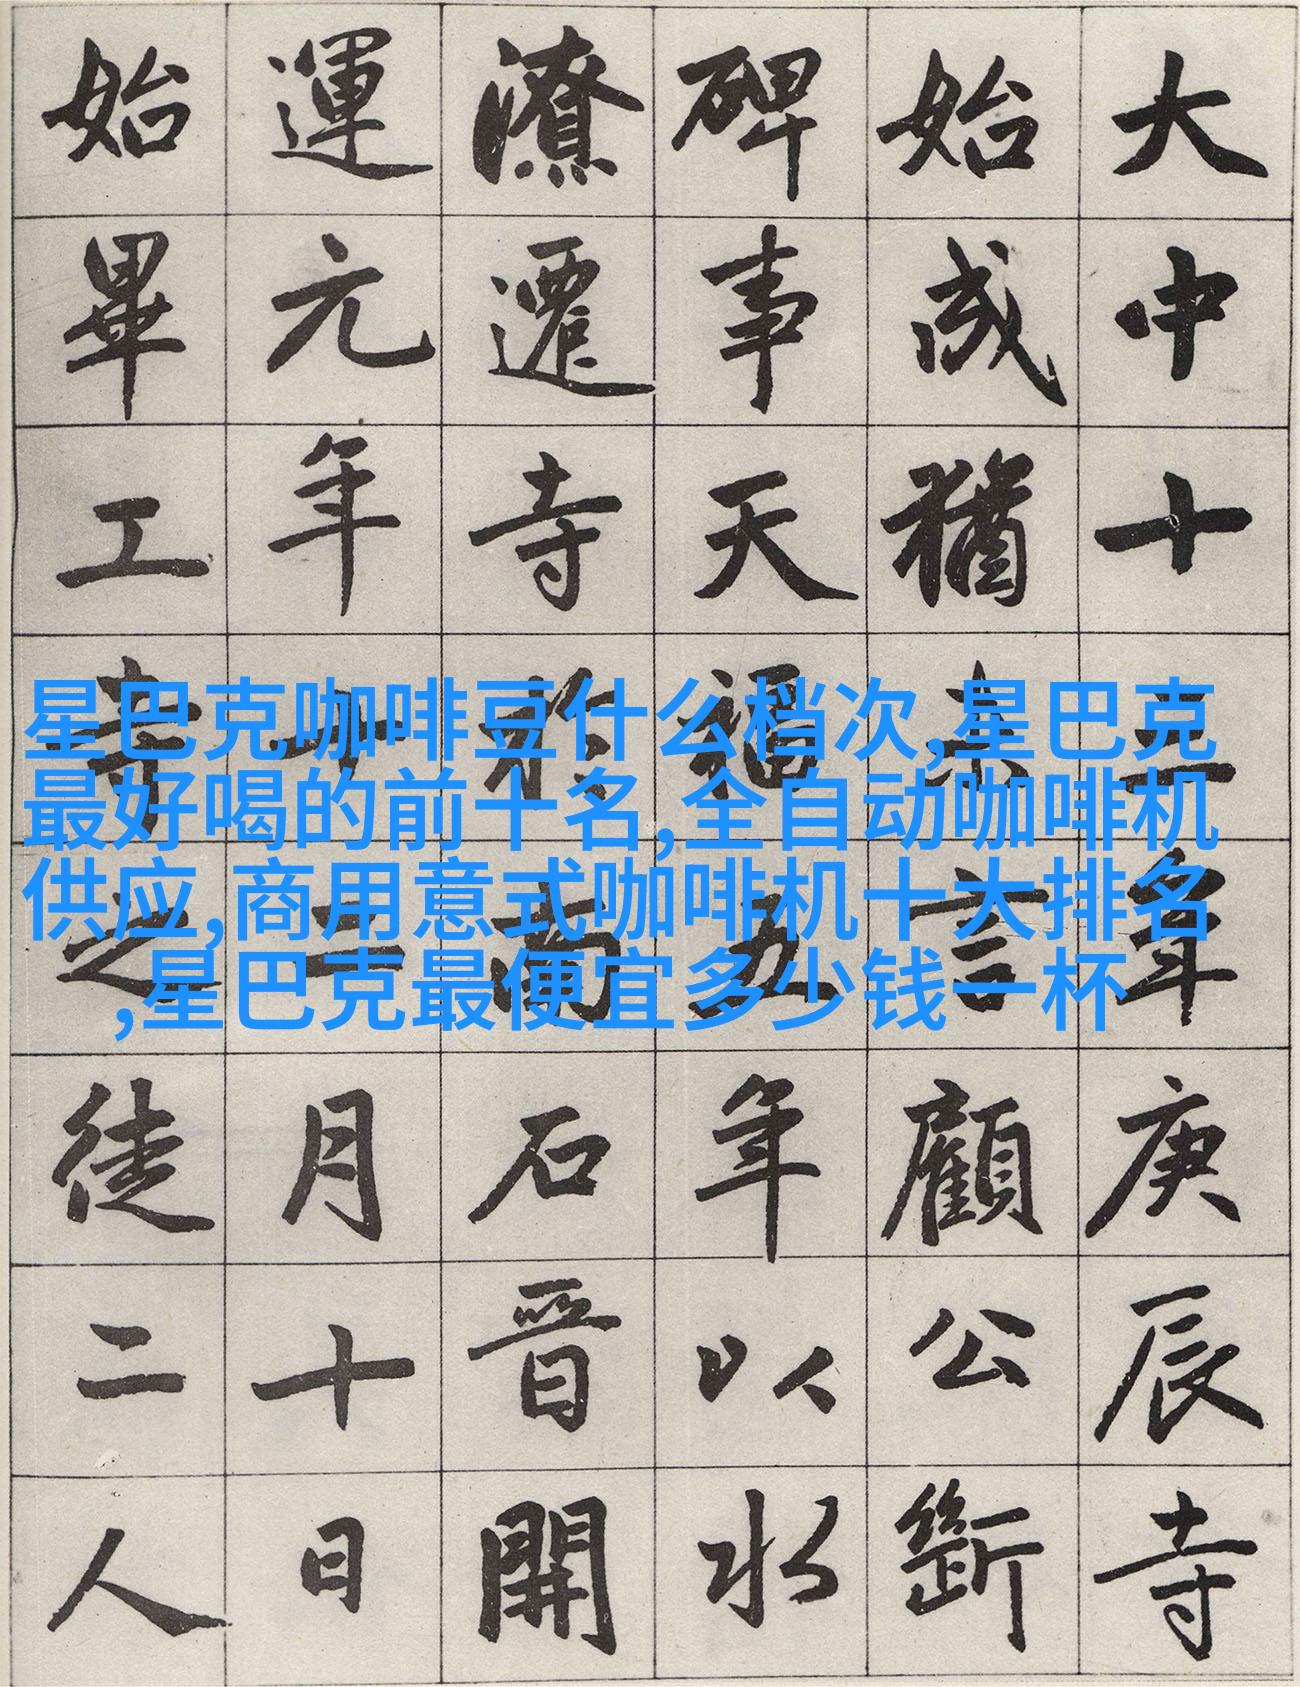 大中十三年庚辰寺
始成猶未言顧公斲
碑事天福五年以水
潦遷寺於高石晉開
運元年十二月十日
始畢工寺之徒二人
星巴克咖啡豆什么档次,星巴克
最好喝的前十名,全自动咖啡机
供应,商用意式咖啡机十大排名
,星巴克最便宜多少钱一杯